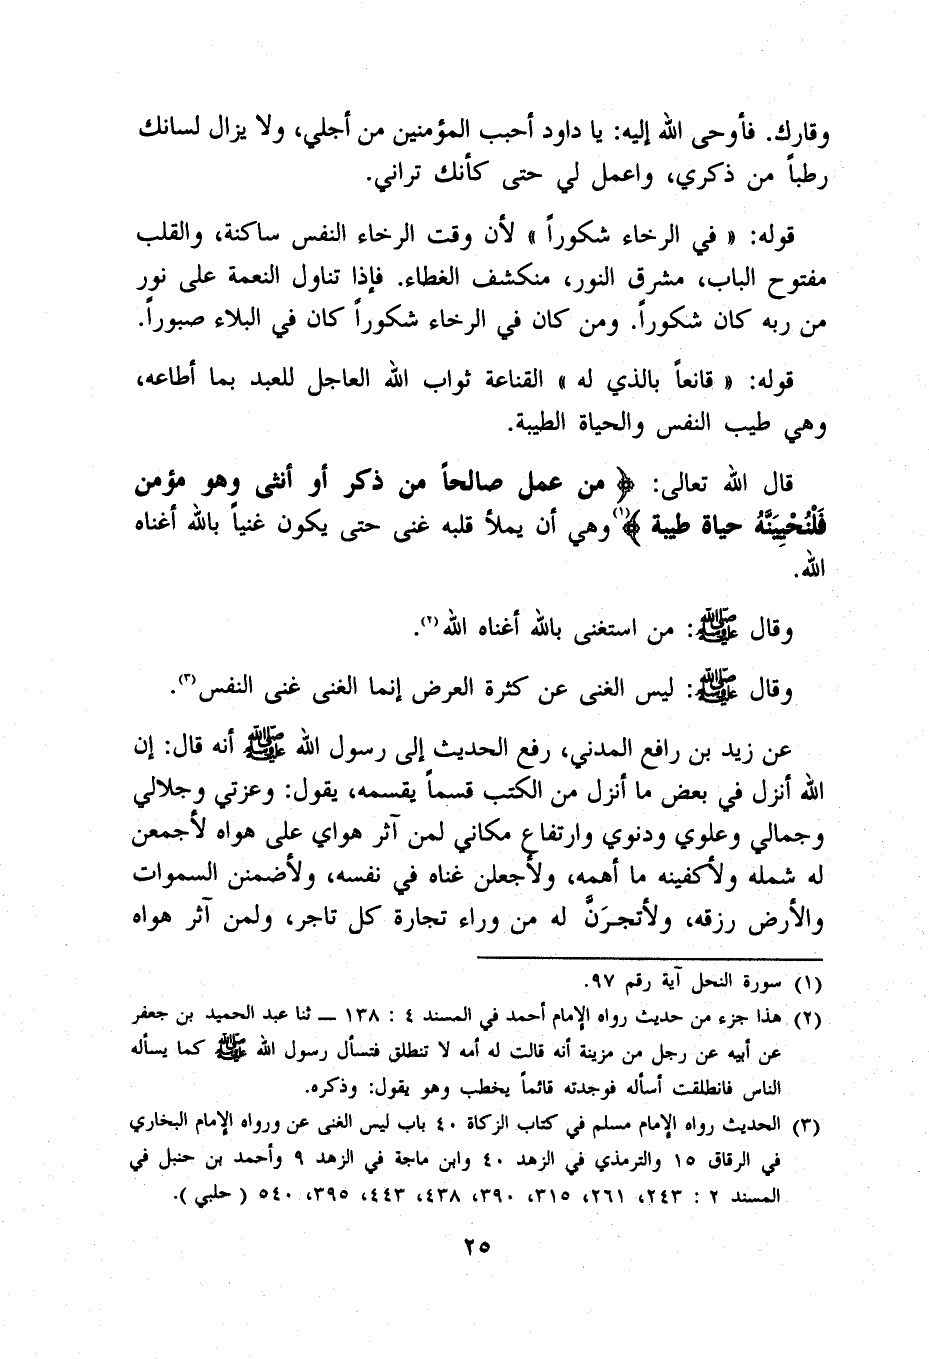 وقارك. فأوحى الله إليه: يا داود أحبب المؤمنين من أجلي، ولا يزال لسانك
رطباً من ذكري، واعمل لي حتى كأنك تراني.
قوله: « في الرخاء شكوراً » لأن وقت الرخاء النفس ساكنة، والقلب
مفتوح الباب، مشرق النور، منكشف الغطاء. فإذا تناول النعمة على نور
من ربه كان شكوراً. ومن كان في الرخاء شكوراً كان في البلاء صبوراً.
قوله: « قانعاً بالذي له » القناعة ثواب الله العاجل للعبد بما أطاعه،
وهي طيب النفس والحياة الطيبة.
قال الله تعالى: ﴿ من عمل صالحاً من ذكر أو أنثى وهو مؤمن
فَلْنُحْيِيَنَّهُ حياة طيبة ﴾(١) وهي أن يملأ قلبه غنى حتى يكون غنياً بالله أغناه
الله.
وقال ﷺ: من استغنى بالله أغناه الله(٢).
وقال ﷺ: ليس الغنى عن كثرة العرض إنما الغنى غنى النفس(٣).
عن زيد بن رافع المدني، رفع الحديث إلى رسول الله ﷺ أنه قال: إن
الله أنزل في بعض ما أنزل من الكتب قسماً يقسمه، يقول: وعزتي وجلالي
وجمالي وعلوي ودنوي وارتفاع مكاني لمن آثر هواي على هواه لأجمعن
له شمله ولأكفينه ما أهمه، ولأجعلن غناه في نفسه، ولأضمنن السموات
والأرض رزقه، ولأتجرَنَّ له من وراء تجارة كل تاجر، ولمن آثر هواه
(١) سورة النحل آية رقم ٩٧.
(٢) هذا جزء من حديث رواه الإمام أحمد في المسند ٤ : ١٣٨ ــ ثنا عبد الحميد بن جعفر
عن أبيه عن رجل من مزينة أنه قالت له أمه لا تنطلق فتسأل رسول الله ﷺ كما يسأله
الناس فانطلقت أسأله فوجدته قائماً يخطب وهو يقول: وذكره.
(٣) الحديث رواه الإمام مسلم في كتاب الزكاة ٤٠ باب ليس الغنى عن ورواه الإمام البخاري
في الرقاق ١٥ والترمذي في الزهد ٤٠ وابن ماجة في الزهد ٩ وأحمد بن حنبل في
المسند ٢ : ٢٤٣، ٢٦١، ٣١٥، ٣٩٠، ٤٣٨، ٤٤٣، ٣٩٥، ٥٤٠ ( حلبي ).
٢٥